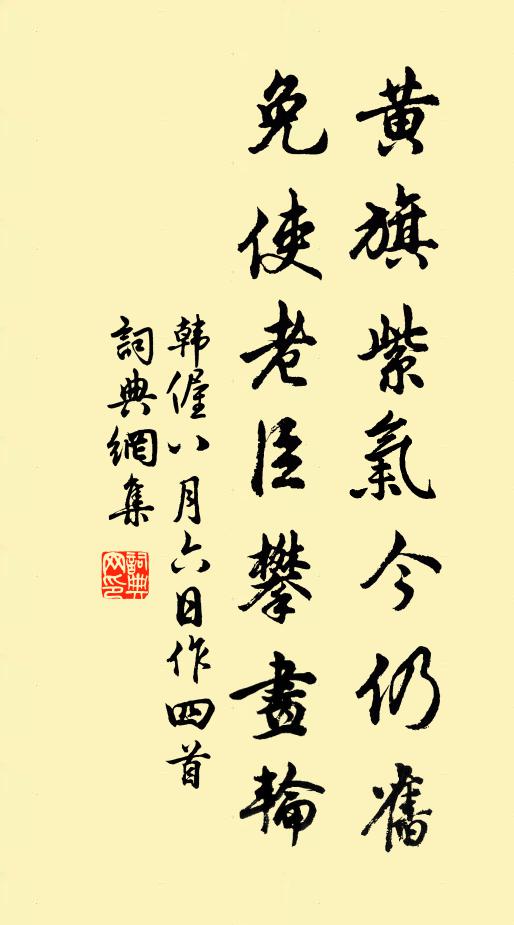 黃旗紫氣今仍舊
免使老臣攀畫輪
韩偓八月六日作四首
詞典網集
詞典网印